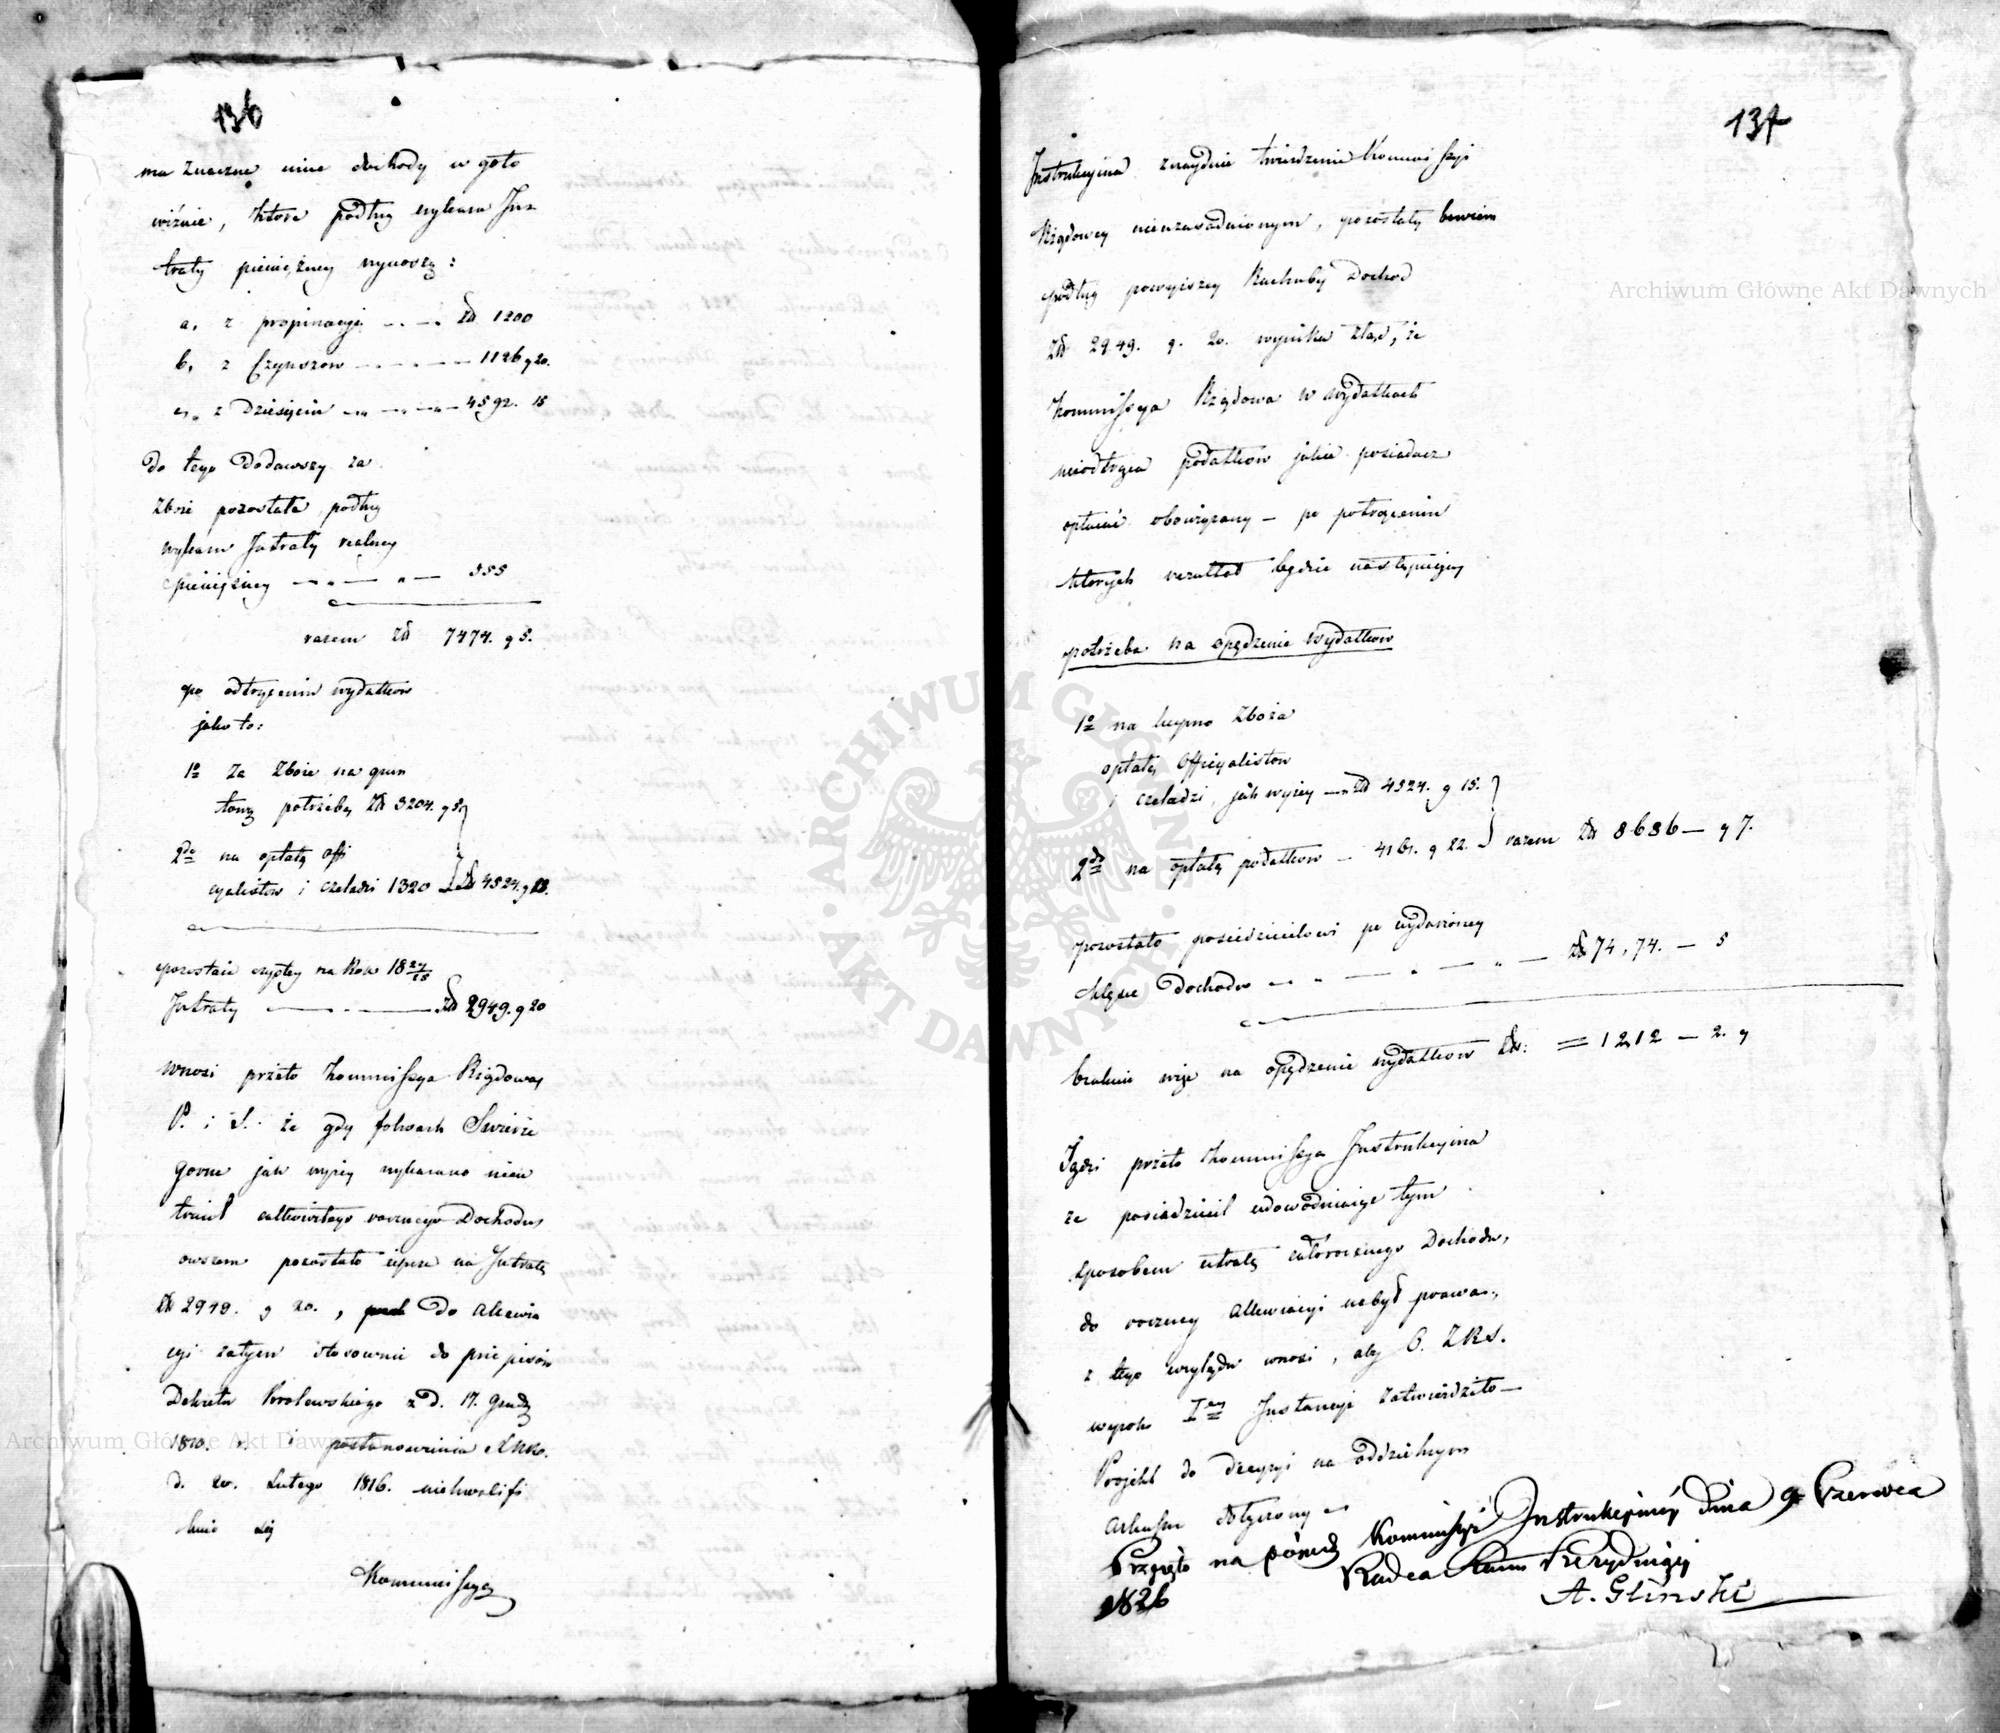 136
ma znaczne inne dochody w goto
wiźnie, które podług wykazu In=
traty pieniężney wynoszą:
a, z propinacyi — . — . Zł 1200
b, z Czynszow — . — . — 1126 g 20.
c, z Dziesięcin — „ — „ — 4592. 15
do tego Dodawszy za
zboże pozostałe, podług
wykazu Intraty realney
pieniężney — „ — „ — 555
razem Zł 7474. g 5.
po odtrąceniu wydatków
jako to:
1º Za Zboże na grun
tową potrzebę Zł 3204. g 15
2do na opłatę offi
cyalistów i czeladzi 1320 Zł 4524. g 15.
pozostaie czystey na Rok 18 24/25
Intraty — . — Zł 2949. g 20
wnosi przeto Kommissya Rządowa
P. i S. że gdy folwark Swierże
Gorne jak wyżey wykazano nieu
tracił całkowitego rocznego Dochodu
owszem pozostało ieszcze na Intratę
Zł 2949. g 20., do alewia
cyi zatym stosownie do przepisów
Dekretu Krolewskiego z d. 17. Grud
1810. r. i postanowienia XNKr.
d. 20. Lutego 1816. niekwalifi
kuie się
Kommissya
137
Instrukcyina znayduie twierdzenie Kommissyi
Rządowey nieuzasadnionym, pozostały bowiem
podług powyższey Rachuby Dochod
Zł 2949. g. 20. wynika ztąd, że
Kommissya Rządowa w wydatkach
nieodtrąca podatków jakie posiadacz
opłacać obowiązany — po potrąceniu
których rezultat będzie następuiący
potrzeba na opędzenie wydatków
1º na kupno Zboża
opłatę Officyalistow
i czeladzi, jak wyżey — Zł 4524. g 15.
2do na opłatę podatkow — 4161. g 22. razem Zł 8686 — g 7.
pozostało posiedzicielowi po wydarzoney
klęsce Dochodu — „ — „ — „ — Zł 74,74. — 5
brakuie więc na opędzenie wydatków Zł: = 1212 — 2. g
Sądzi przeto Kommissya Instrukcyina
że posiedziciel udowodniaiąc tym
sposobem utratę całorocznego Dochodu,
do roczney allewiacyi nabył prawa,
z tego względu wnosi, aby O. ZRS.
wyrok Iey Instancyi zatwierdziło —
Projekt do decyzyi na oddzielnym
Arkuszu dołączony
Przyięto na Kommissyi Instrukcyiney Dnia 9 Czerwca
1826
Radca Stanu Prezyduiący
A. Gliński
Archiwum Główne Akt Dawnych
Archiwum Główne Akt Dawnych
ARCHIWUM GŁÓWNE AKT DAWNYCH